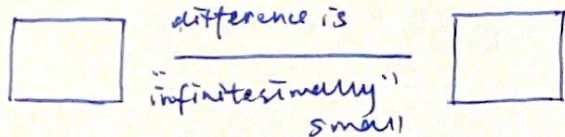 difference is
"infinitesimally"
small